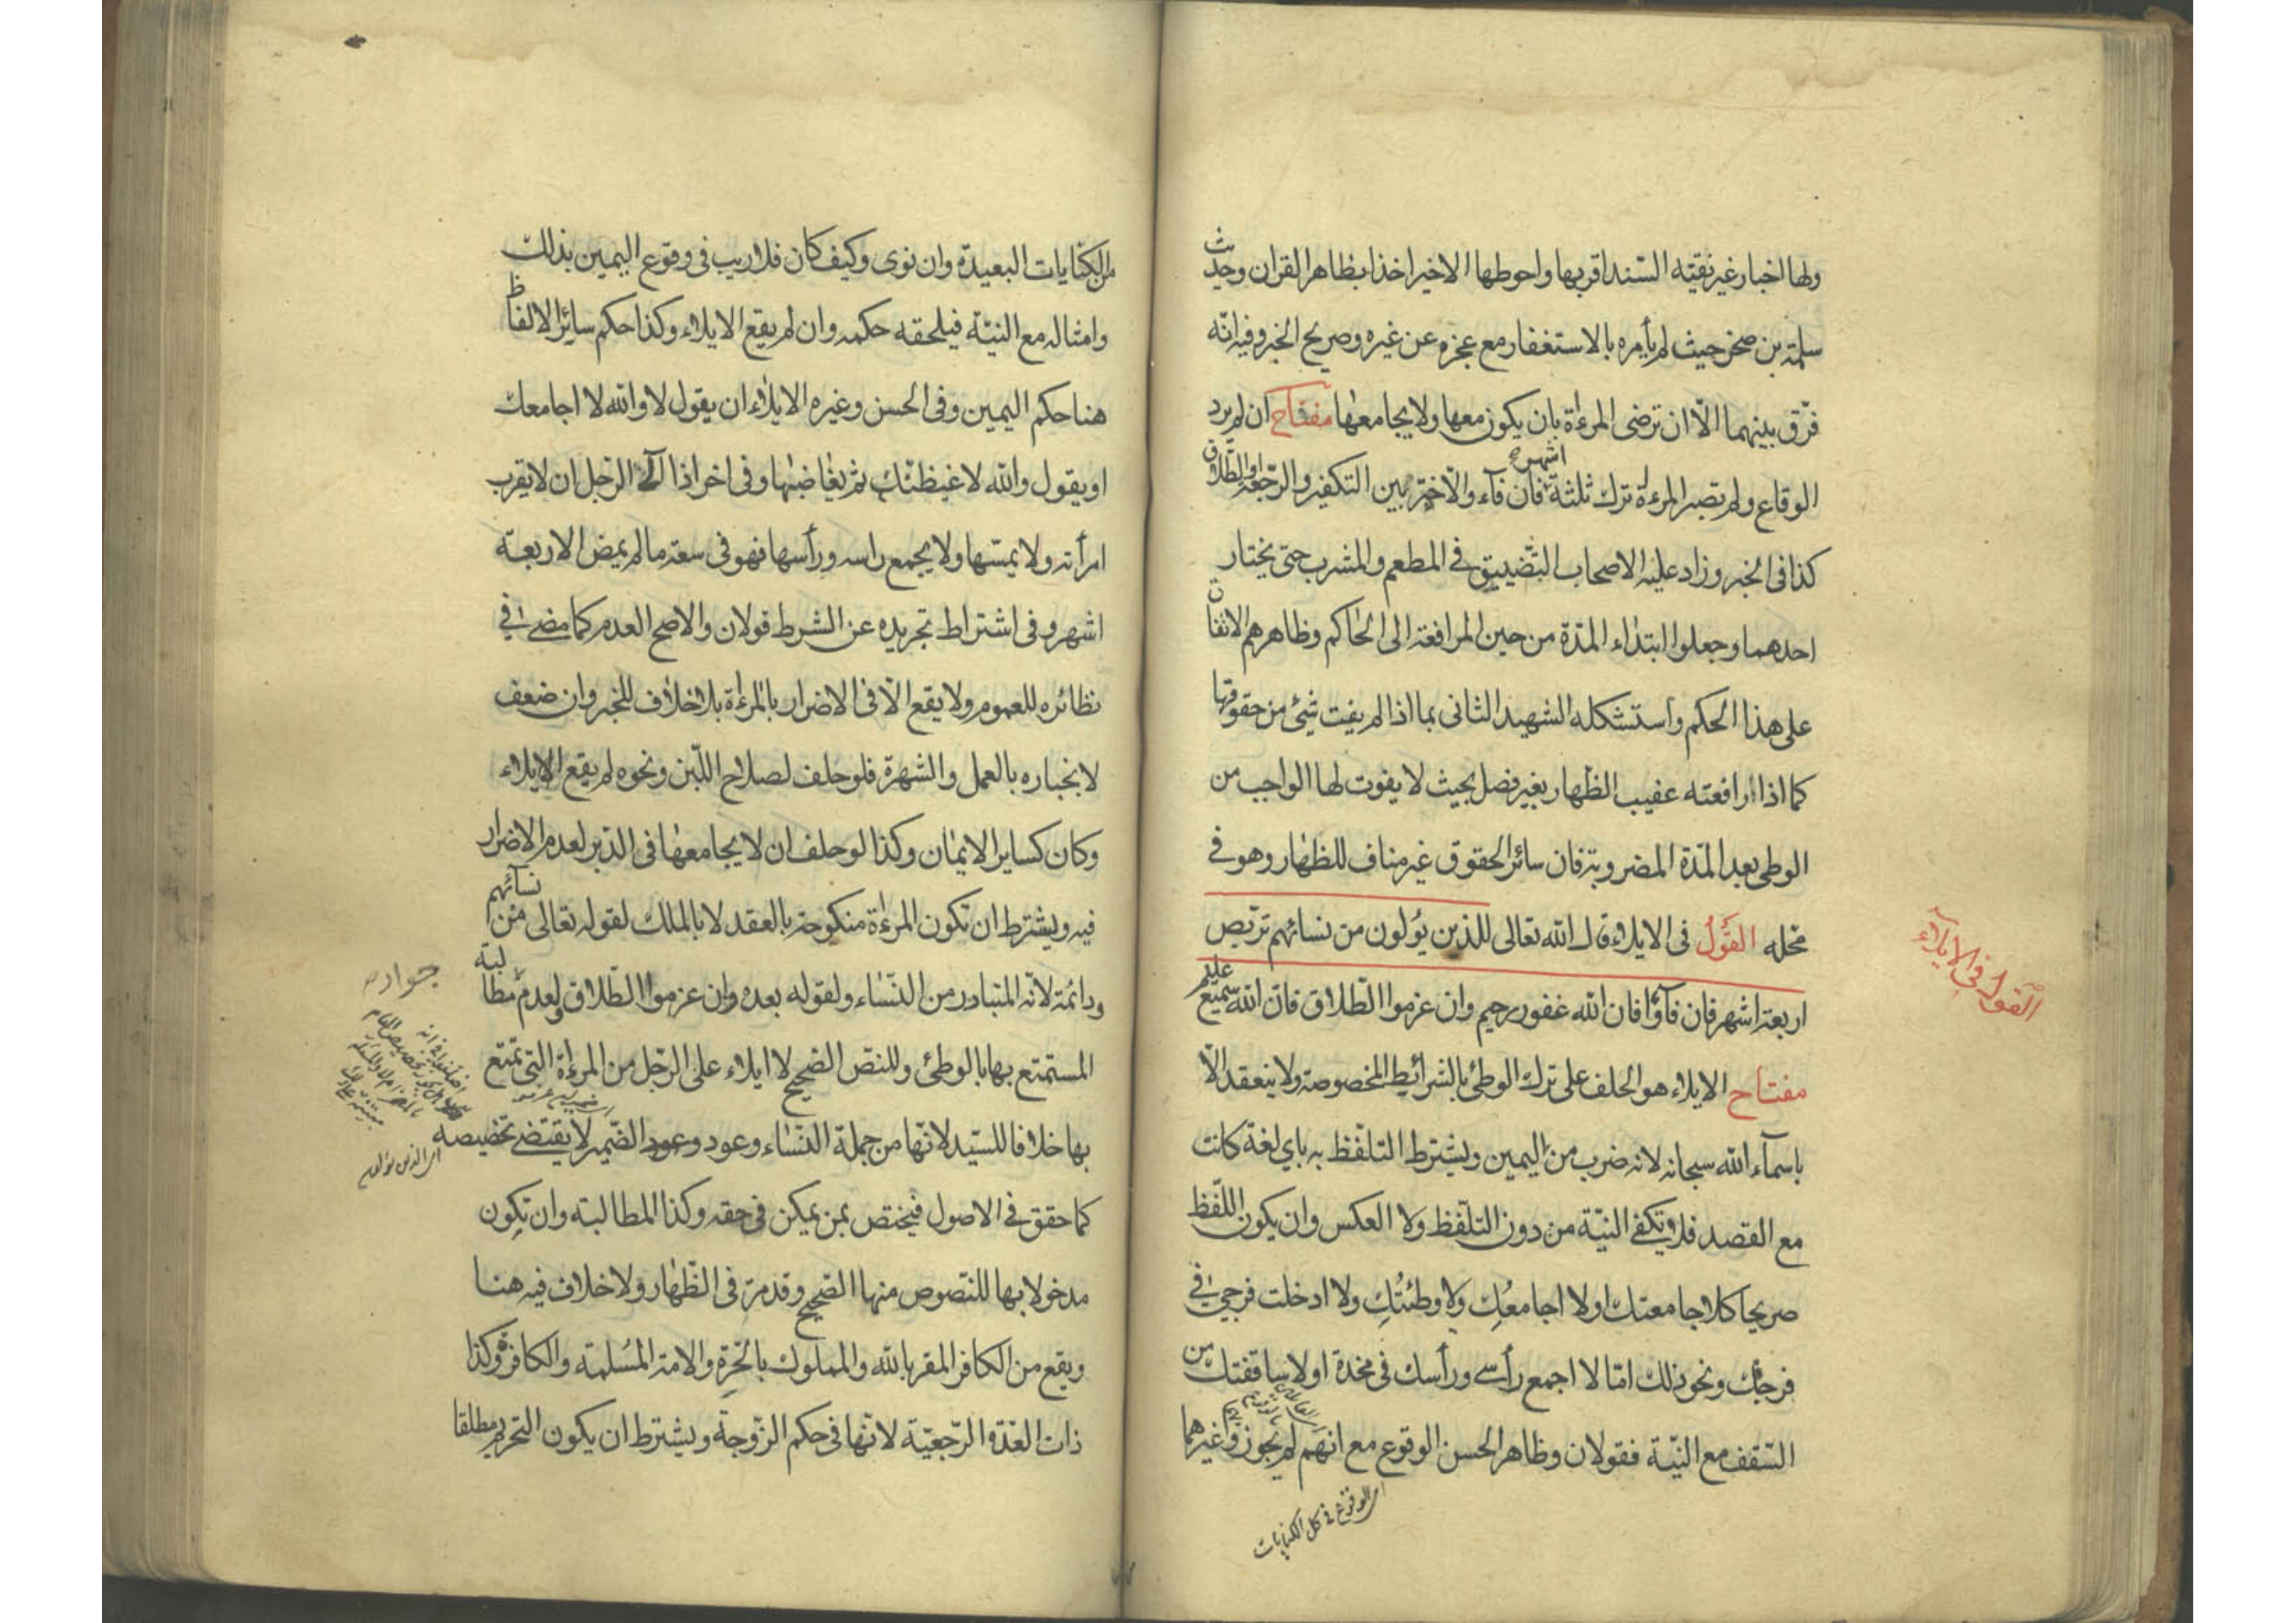 ولها اخبار غير نقية السند اقربها واحوطها الاخير اخذا بظاهر القران وحديث
سلمة بن صخر حيث لم يأمره بالاستغفار مع عجزه عن غيره وصريح الخبر وفيه انه
فرق بينهما الّا ان ترضى المرءة بان يكون معها ولا يجامعها مفتاح ان لم يرد
الوقاع ولم تصبر المرءة ترك ثلثة اشهر فان فآء والّا خيّر بين التكفير والرّجعة او الطّلاق
كذا فى الخبر وزاد عليه الاصحاب التّضييق في المطعم والمشرب حتى يختار
احدهما وجعلوا ابتداء المدّة من حين المرافعة الى الحاكم وظاهرهم الاتفاق
على هذا الحكم واستشكله الشهيد الثانى بما اذا لم يفت شئ من حقوقها
كما اذا رافعته عقيب الظهار بغير فصل بحيث لا يفوت لها الواجب من
الوطى بعد المدّة المضروبة فان سائر الحقوق غير مناف للظهار وهو في
محله القول فى الايلاء قال الله تعالى للذين يؤلون من نسائهم تربّص
القول في الايلاء
اربعة اشهر فان فآؤا فان الله غفور رحيم وان عزموا الطّلاق فانّ الله سميع عليم
مفتاح الايلاء هو الحلف على ترك الوطئ بالشرائط المخصوصة ولا ينعقد الّا
باسمآء الله سبحانه لانه ضرب من اليمين ويشترط التلفّظ به باي لغة كانت
مع القصد فلا يكفى النيّة من دون التلفّظ ولا العكس وان يكون اللّفظ
صريحا كلا جامعتك او لا اجامعك ولا وطئتك ولا ادخلت فرجي في
فرجك ونحو ذلك امّا لا اجمع رأسي ورأسك فى مخدة او لا ساقفتك من
السّقف مع النيّة فقولان وظاهر الحسن الوقوع مع انهم لم يجوزوا غيرهما
اى الوقوع فى كل الكنايات
من الكنايات البعيدة وان نوى وكيف كان فلا ريب فى وقوع اليمين بذلك
وامثاله مع النيّة فيلحقه حكمه وان لم يقع الايلاء وكذا حكم سائر الالفاظ
هنا حكم اليمين وفى الحسن وغيره الايلاء ان يقول لا والله لا اجامعك
او يقول والله لاغيظنّك ثم يغاضبها وفى اخر اذا آلى الرّجل ان لا يقرب
امرأته ولا يمسّها ولا يجمع راسه ورأسها فهو فى سعة ما لم يمض الاربعة
اشهر وفى اشتراط تجريده عن الشرط قولان والاصح العدم كما مضى في
نظائره للعموم ولا يقع الّا فى الاضرار بالمرءة بلا خلاف للخبر وان ضعف
لانجباره بالعمل والشهرة فلو حلف لصلاح اللّبن ونحوه لم يقع الايلاء
وكان كساير الايمان وكذا لو حلف ان لا يجامعها فى الدّبر لعدم الاضرار
فيه ويشترط ان تكون المرءة منكوحة بالعقد لا بالملك لقوله تعالى من نسآئهم
ودائمة لانه المتبادر من النّساء ولقوله بعده وان عزموا الطّلاق ولعدم مطالبة
المستمتع بها بالوطئ وللنصّ الصّحيح لا ايلاء على الرّجل من المرءة التي تمتّع
بها خلافا للسيّد لانّها من جملة النّساء وعود وعود الضّمير لا يقتضي تخصيصه
اى الذين يؤلون
كما حقق في الاصول فيختص بمن يمكن في حقه وكذا المطالبة وان تكون
مدخولا بها للنّصوص منها الصّحيح وقد مرّ فى الظّهار ولا خلاف فيه هنا
ويقع من الكافر المقر بالله والمملوك بالحرّة والامة المسلمة والكافرة وكذا
ذات العدّة الرّجعيّة لانّها فى حكم الزّوجة ويشترط ان يكون التحريم مطلقا